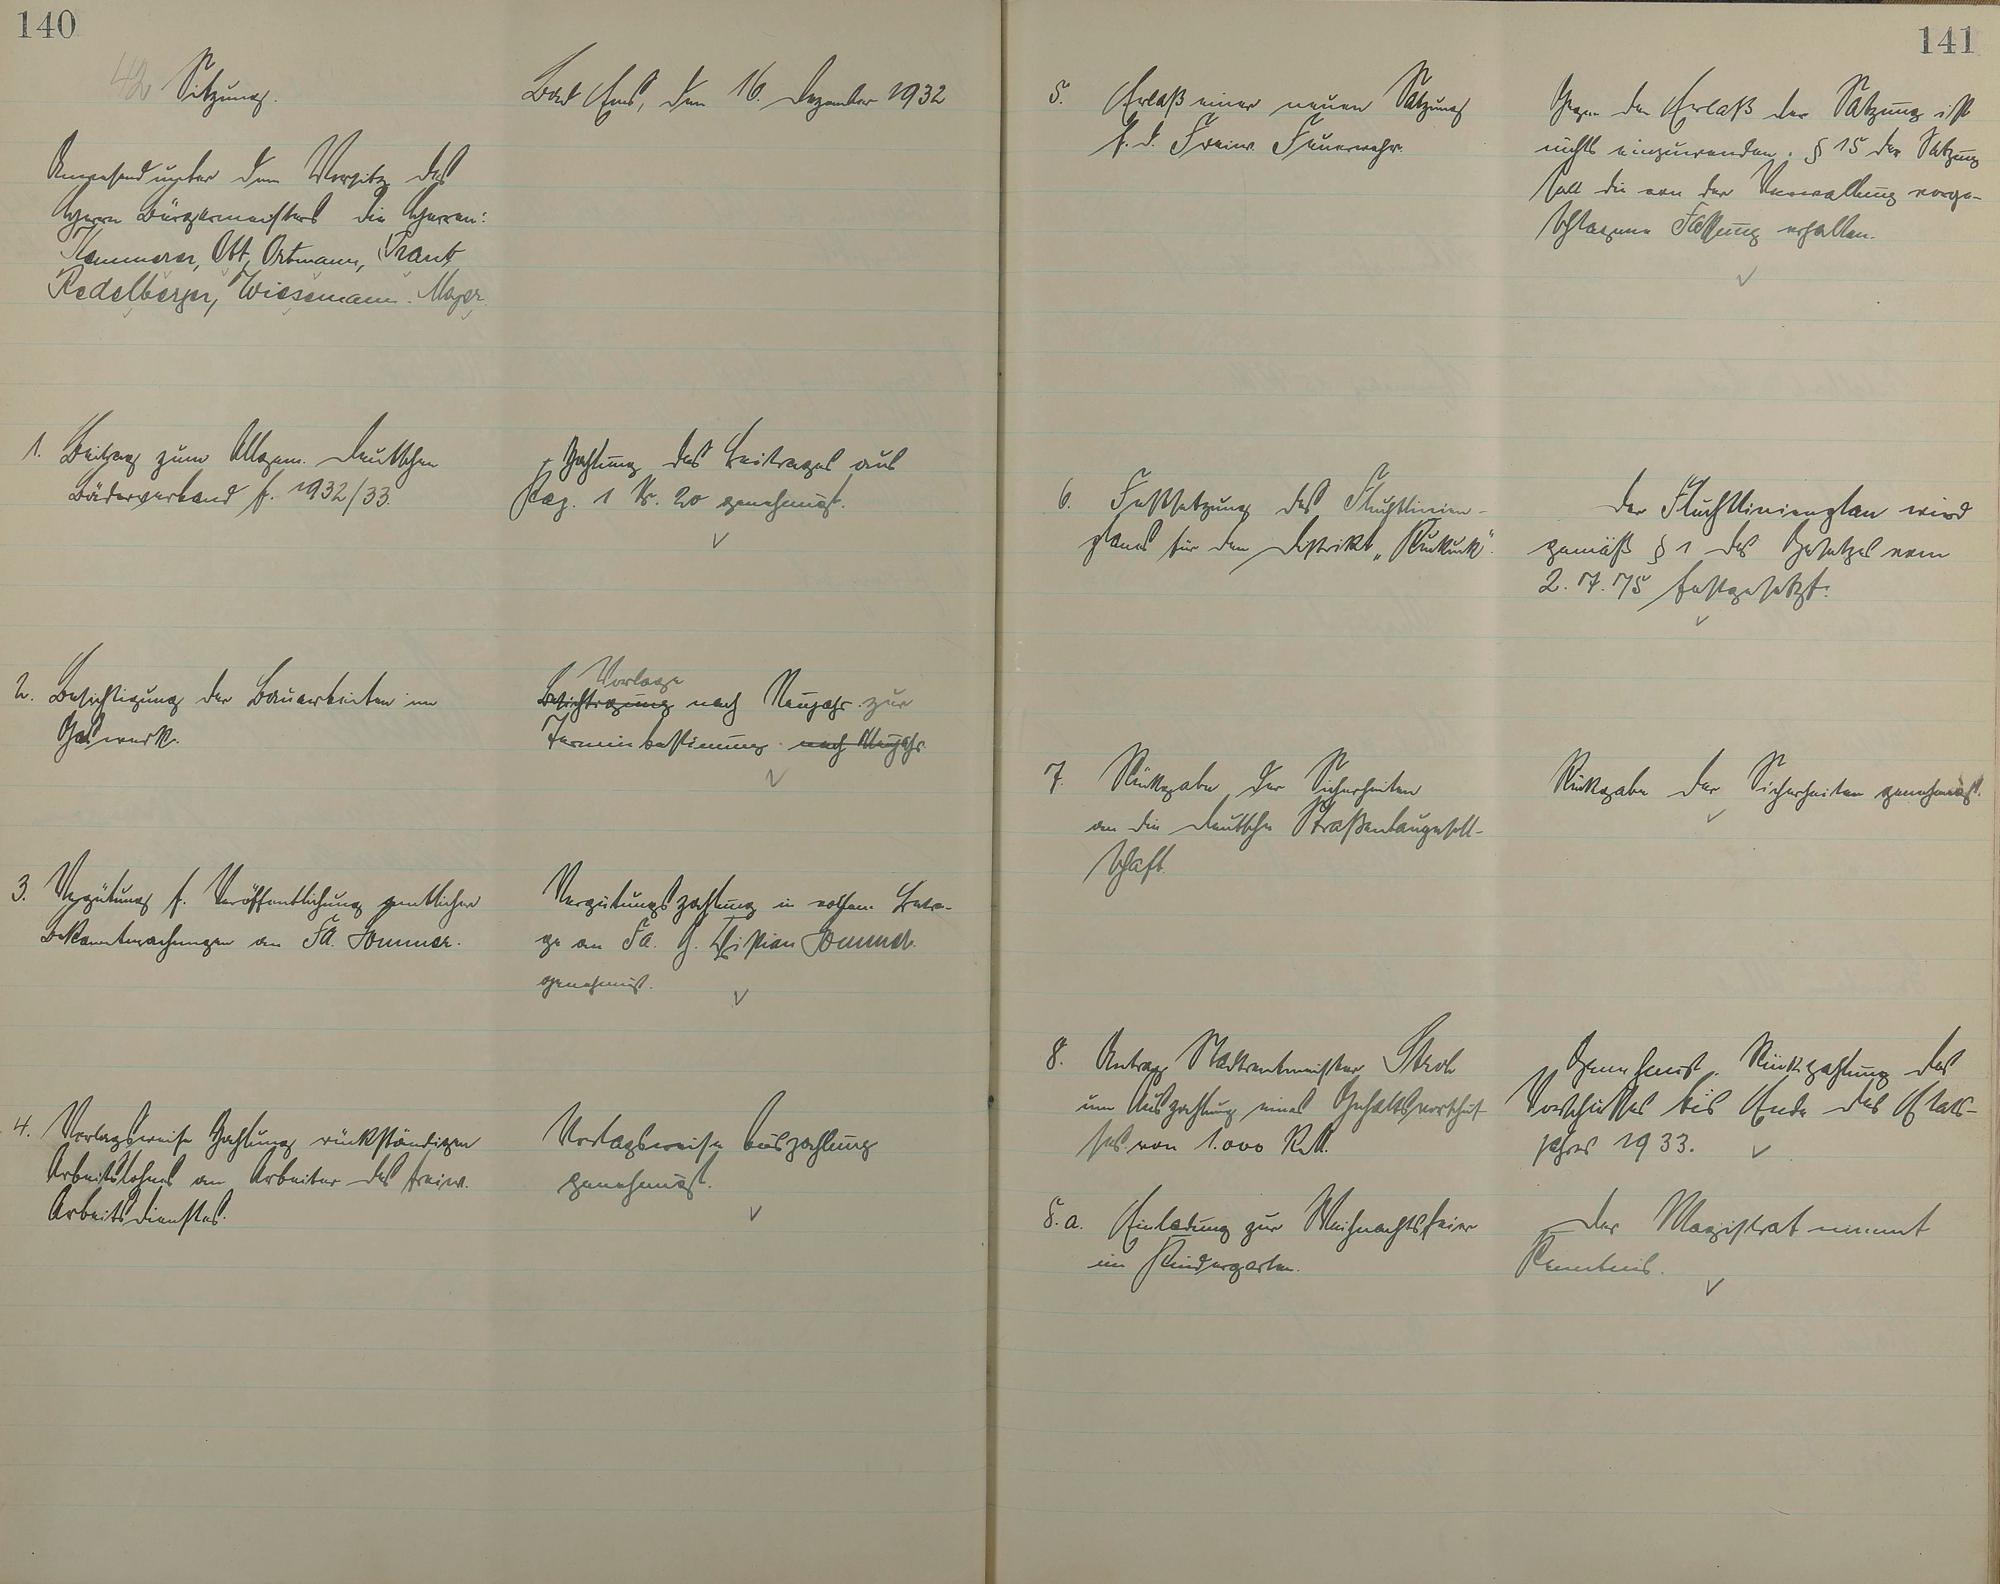 140
42 Sitzung.
Bad Ems, den 16. Dezember 1932
Anwesend unter dem Vorsitz des
Herrn Bürgermeisters die Herren:
Kemmerer, Ott, Ortmann, Frank
Redelberger, Wiesemann. Mayer.
1. Beitrag zum Allgem. Deutschen
Bäderverband f. 1932/33.
Zahlung des Beitrages aus
Kag. 1 Nr. 20 genehmigt.
2. Besichtigung der Bauarbeiten im
Gaswerk.
Vorlage
Besichtigung nach Neujahr zur
Terminbestimmung nach Neujahr
3. Vergütung f. Veröffentlichung amtlicher
Bekanntmachungen an Fa. Sommer.
Vergütungszahlung in voller Betra-
ge an Fa. H. Chr. Sommer
genehmigt.
4. Verlagsweise Zahlung rückständigen
Arbeitslohnes an Arbeiter des freiw.
Arbeitsdienstes.
Verlagsweise Auszahlung
genehmigt.
141
5. Erlaß einer neuen Satzung
f. d. Freiw. Feuerwehr.
Gegen den Erlaß der Satzung ist
nichts einzuwenden. § 15 der Satzung
soll die von der Verwaltung vorge-
schlagene Fassung erhalten.
6. Festsetzung des Fluchtlinien-
planes für den Distrikt „Kukuck".
Der Fluchtlinienplan wird
gemäß § 1 des Gesetzes vom
2.7.75 festgesetzt.
7. Rückgabe der Sicherheiten
an die Deutsche Straßenbaugesell-
schaft.
Rückgabe der Sicherheiten genehmigt.
8. Antrag Stadtrentmeister Stroh
um Auszahlung eines Gehaltsvorschus-
ses von 1.000 RM.
Genehmigt. Rückzahlung des
Vorschusses bis Ende des Etats-
jahres 1933.
8.a. Einladung zur Weihnachtsfeier
im Kindergarten.
Der Magistrat nimmt
Kenntnis.